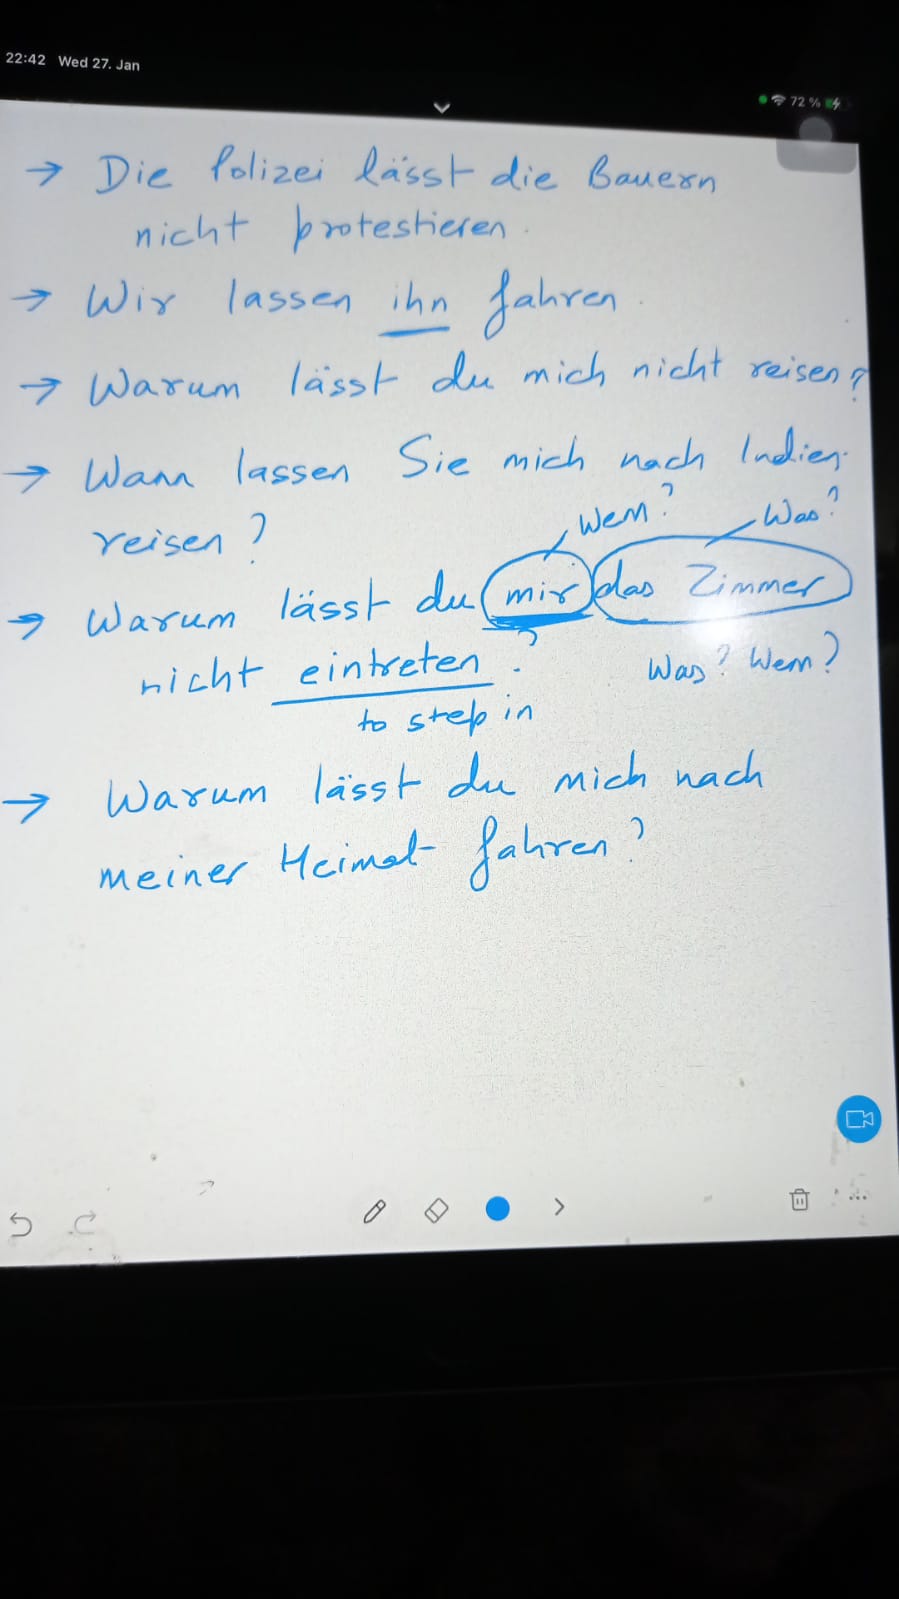 22:42 Wed 27. Jan
72 %
→ Die Polizei lässt die Bauern
nicht protestieren.
→ Wir lassen ihn fahren.
→ Warum lässt du mich nicht reisen?
→ Wann lassen Sie mich nach Indien
reisen?
Wem? Was?
→ Warum lässt du mir das Zimmer
nicht eintreten? Was? Wem?
to step in
→ Warum lässt du mich nach
meiner Heimat fahren?